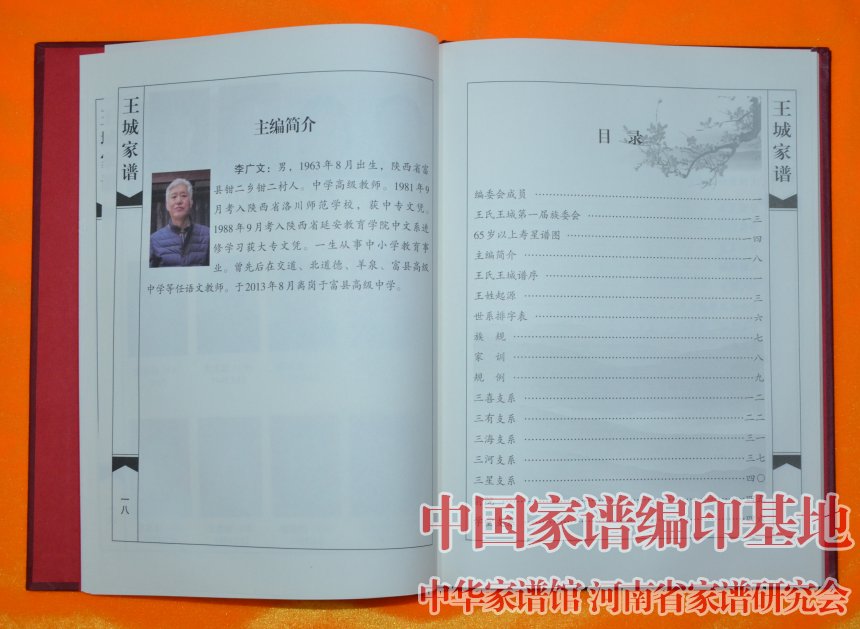 王城家谱
主编简介
李广文：男，1963年8月出生，陕西省富
县钳二乡钳二村人。中学高级教师。1981年9
月考入陕西省洛川师范学校，获中专文凭。
1988年9月考入陕西省延安教育学院中文系进
修学习获大专文凭。一生从事中小学教育事
业。曾先后在交道、北道德、羊泉、富县高级
中学等任语文教师。于2013年8月离岗于富县高级中学。
一八
王城家谱
目 录
编委会成员 …… 一
王氏王城第一届族委会 …… 一三
65岁以上寿星谱图 …… 一四
主编简介 …… 一八
王氏王城谱序 …… 一
王姓起源 …… 三
世系排字表 …… 六
族 规 …… 七
家 训 …… 八
规 例 …… 九
三喜支系 …… 一二
三有支系 …… 二二
三海支系 …… 三一
三河支系 …… 三七
三星支系 …… 四〇
中国家谱编印基地
中华家谱馆 河南省家谱研究会